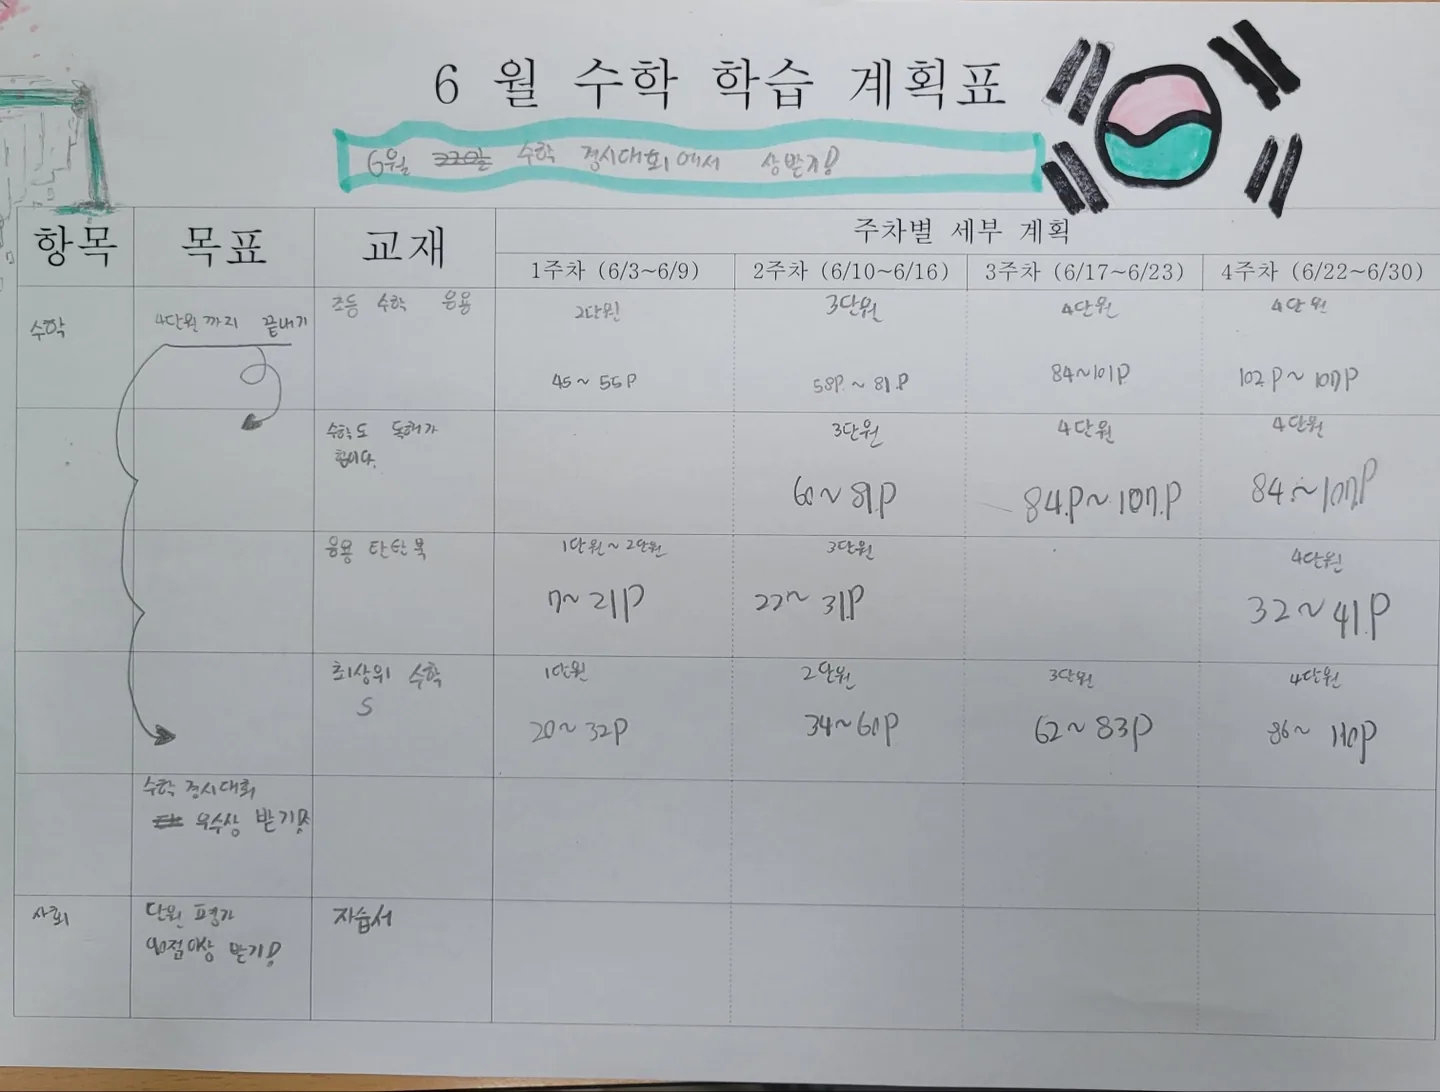 6 월 수학 학습 계획표
6월 수학 경시대회에서 상받자!
항목 목표 교재 주차별 세부 계획
1주차 (6/3~6/9) 2주차 (6/10~6/16) 3주차 (6/17~6/23) 4주차 (6/22~6/30)
수학 4단원까지 끝내기 초등 수학 응용 2단원 3단원 4단원 4단원
45~55P 58P.~81.P 84~101P 102P~107P
수학도 독해가 3단원 4단원 4단원
힘이다. 60~81.P 84.P~107.P 84.~107.P
응용 탄탄북 1단원~2단원 3단원 4단원
7~21P 22~31.P 32~41.P
최상위 수학 1단원 2단원 3단원 4단원
S 20~32P 34~60P 62~83P 86~110P
수학 경시대회
우수상 받기!
사회 단원 평가 자습서
90점이상 받기!